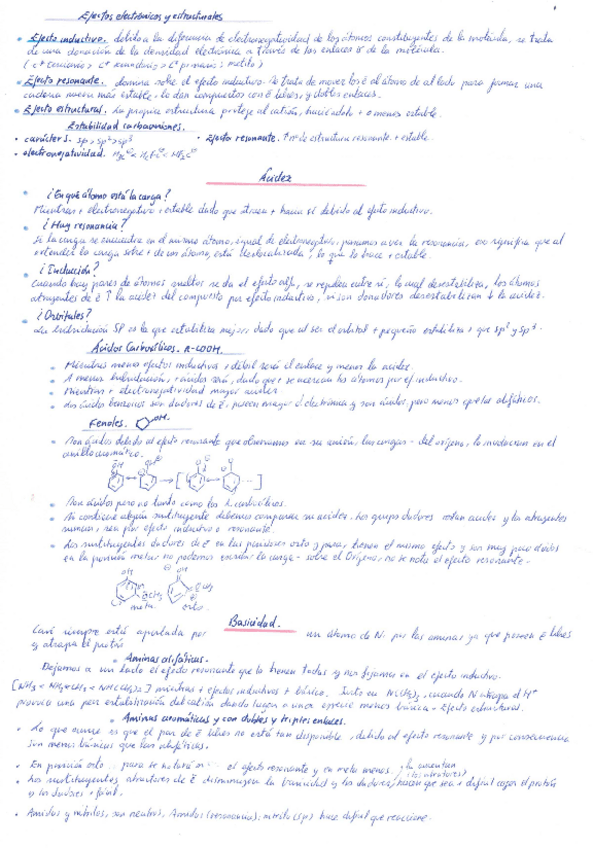 Efectos electrónicos y estructurales
Efecto inductivo. debido a la diferencia de electronegatividad de los átomos constituyentes de la molécula, se trata
de una donación de la densidad electrónica a través de los enlaces σ de la molécula.
(C+ terciario > C+ secundario > C+ primario > metilo)
Efecto resonante. domina sobre el efecto inductivo. Se trata de mover los é al átomo de al lado para formar una
nueva más estable, lo dan compuestos con é libres, y dobles enlaces.
Efecto estructural. La propia estructura protege al catión, haciéndolo + o menos estable.
Estabilidad carbaniones.
• carácter s. sp > sp² > sp³ • Efecto resonante. ↑ nº de estructura resonante. + estable.
• electronegatividad.
Acidez
¿En qué átomo está la carga?
Mientras + electronegativo + estable dado que atrae + hacia sí debido al efecto inductivo.
¿Hay resonancia?
Si la carga se encuentra en el mismo átomo, igual de electroneg., pasamos a ver la resonancia, eso significa que al
extender la carga sobre + de un átomo, está deslocalizada, lo que lo hace + estable.
¿Inducción?
Cuando hay pares de átomos se da el efecto, se repelen entre sí, lo cual desestabiliza, los átomos
atrayentes de é ↑ la acidez del compuesto por efecto inductivo, si son donadores desestabilizan ↓ la acidez.
¿Orbitales?
La hibridación SP es la que estabiliza mejor, dado que al ser el orbital + pequeño estabiliza + que sp² y sp³.
Ácidos Carboxílicos. R-COOH.
• Mientras menos efectos inductivos + débil será el enlace y menor la acidez.
• A menor hibridación, + ácido será, dado que + se acercan los átomos por ef. inductivo.
• Mientras + electronegatividad mayor acidez.
• Los ácidos son dadores de é, poseen mayor d. electrónica y son ácidos pero menos que los alifáticos.
Fenoles. OH.
• Son ácidos debido al efecto resonante que observamos en su anión, las cargas - del oxígeno, lo involucran en el
anillo aromático.
• Son ácidos pero no tanto como los á. carboxílicos.
• Si contiene algún sustituyente debemos comparar su acidez. Los grupos dadores restan acidez y los atrayentes
suman, sea por efecto inductivo o resonante.
• Los sustituyentes dadores de é en las posiciones orto y para, tienen el mismo efecto y son muy poco ácidos
en la posición meta no podemos la carga - sobre el Oxígeno, no se nota el efecto resonante.
OH
OCH₃
meta
orto
Basicidad.
Casi siempre está aportada por un átomo de N, por las aminas ya que poseen é libres
y atrapa el protón
• Aminas alifáticas.
Dejamos a un lado el efecto resonante que lo tienen todas y nos fijamos en el efecto inductivo.
mientras + efectos inductivos + básico. Justo en, cuando N atrapa el H+
provoca una peor estabilización del catión dando lugar a una especie menos básica - Efecto estructural.
• Aminas aromáticas y con dobles y triples enlaces.
• Lo que ocurre es que el par de é libres no está tan disponible, debido al efecto resonante y por consecuencia
son menos básicas que las alifáticas.
• En posición orto para se notará el efecto resonante y en meta menos. la aumentan
• Los sustituyentes atractores de é disminuyen la basicidad y los dadores, hacen que sea + difícil coger el protón
y los dadores + fácil.
• Amidas y nitrilos, son neutros, Amidas (resonancia); nitrilo (sp) hace difícil que reaccione.